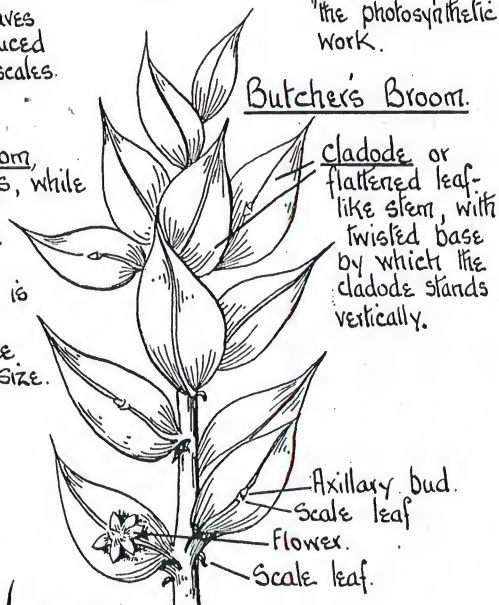 aves
uced
scales.
om,
s, while
is
e
size.
the photosynthetic
work.
Butcher's Broom.
cladode or
flattened leaf-
like stem, with
twisted base
by which the
cladode stands
vertically.
Axillary bud.
Scale leaf
Flower.
Scale leaf.